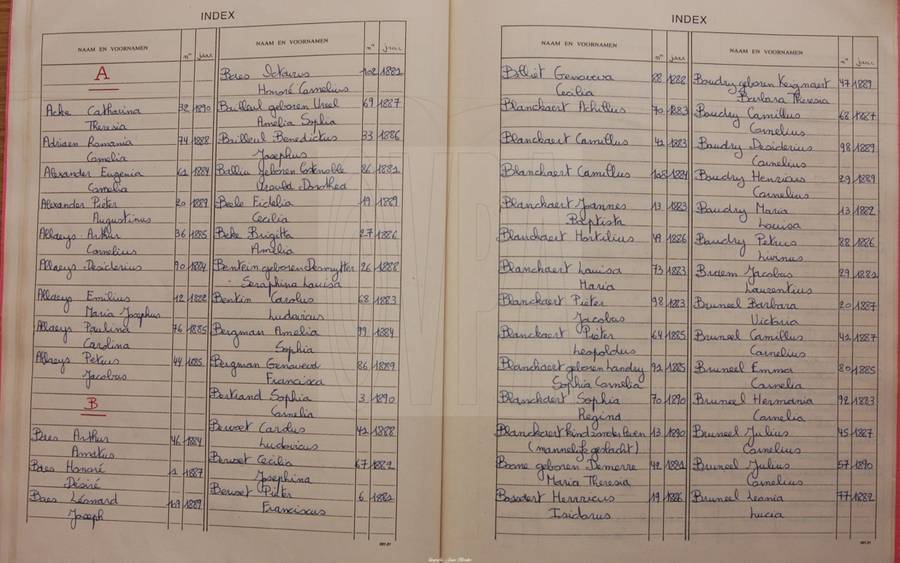 INDEX
NAAM EN VOORNAMEN n° jaar
A
Acke Catharina 32 1890
Theresia
Adriaen Romania 74 1888
Cornelia
Alexander Eugenia 61 1884
Cornelia
Alexander Pieter 20 1889
Augustinus
Allaeys Arthur 36 1885
Cornelius
Allaeys Desiderius 90 1884
Allaeys Emilius 12 1882
Maria Josephus
Allaeys Paulina 76 1885
Carolina
Allaeys Petrus 44 1885
Jacobus
B
Baes Arthur 46 1884
Amatus
Baes Honoré 2 1887
Désiré
Baes Léonard 109 1889
Joseph
NAAM EN VOORNAMEN n° jaar
Baes Octavus 102 1882
Honoré Cornelius
geboren Ureel 69 1887
Amelia Sophia
Benedictus 33 1886
Josephus
Balliu geboren Costenoble 86 1882
Dorothea
Beele Fidelia 19 1889
Cecilia
Beke Brigitta 27 1886
Amelia
Bentein geboren Desmytter 26 1888
Seraphina Louisa
Bentin Carolus 68 1883
Ludovicus
Bergman Amelia 99 1884
Sophia
Bergman Genoveva 86 1889
Francisca
Bertrand Sophia 3 1890
Cornelia
Beuwet Carolus 42 1888
Ludovicus
Beuwet Cecilia 67 1882
Josephina
Beuwet Pieter 6 1882
Franciscus
001.51
INDEX
NAAM EN VOORNAMEN n° jaar
Billiet Genoveva 88 1888
Cecilia
Blanckaert Achillus 70 1883
Blanckaert Camillus 42 1883
Blanckaert Camillus 108 1884
Blanckaert Joannes 13 1883
Baptista
Blanckaert Hortilius 49 1886
Blanckaert Louisa 73 1883
Maria
Blanckaert Pieter 98 1883
Jacobus
Blanckaert Pieter 64 1885
Leopoldus
Blanckaert geboren Landry 92 1885
Sophia Cornelia
Blanckaert Sophia 70 1890
Regina
Blanckaert kind zonder leven 13 1890
(mannelijk geslacht)
Boone geboren Demerre 42 1882
Maria Theresia
Bossaert Henricus 19 1886
Isidorus
NAAM EN VOORNAMEN n° jaar
Boudry geboren Keignaert 47 1889
Barbara Theresia
Boudry Camillus 68 1887
Cornelius
Boudry Desiderius 98 1889
Cornelius
Boudry Henricus 29 1889
Cornelius
Boudry Maria 13 1882
Louisa
Boudry Petrus 88 1886
Livinus
Braem Jacobus 29 1882
Laurentius
Bruneel Barbara 20 1887
Victoria
Bruneel Camillus 42 1887
Cornelius
Bruneel Emma 80 1885
Cornelia
Bruneel Hermania 92 1883
Cornelia
Bruneel Julius 45 1887
Cornelius
Bruneel Julius 57 1890
Cornelius
Bruneel Leonia 77 1882
Lucia
001.51